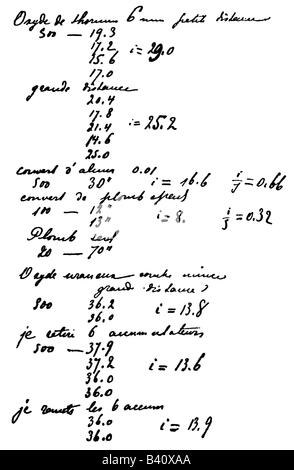 Oxyde de thorium 6 mm petite distance
500 — 19.3
17.2 i = 29.0
15.6
17.0
grande distance
20.4
17.8
21.4 i = 25.2
14.6
25.0
couvert d'alum 0.01
500 30" i = 16.6 i/j = 0.66
couvert de plomb
100 — 12"
13" i = 8. i/j = 0.32
Plomb seul
20 — 70"
Oxyde uraneux couche mince
grande distance
500 36.2
36.0 i = 13.8
je retire 6 accumulateurs
500 — 37.9
37.2 i = 13.6
36.0
36.0
je remets les 6 accum
36.0 i = 13.9
36.0
alamy
B40XAA
www.alamy.com